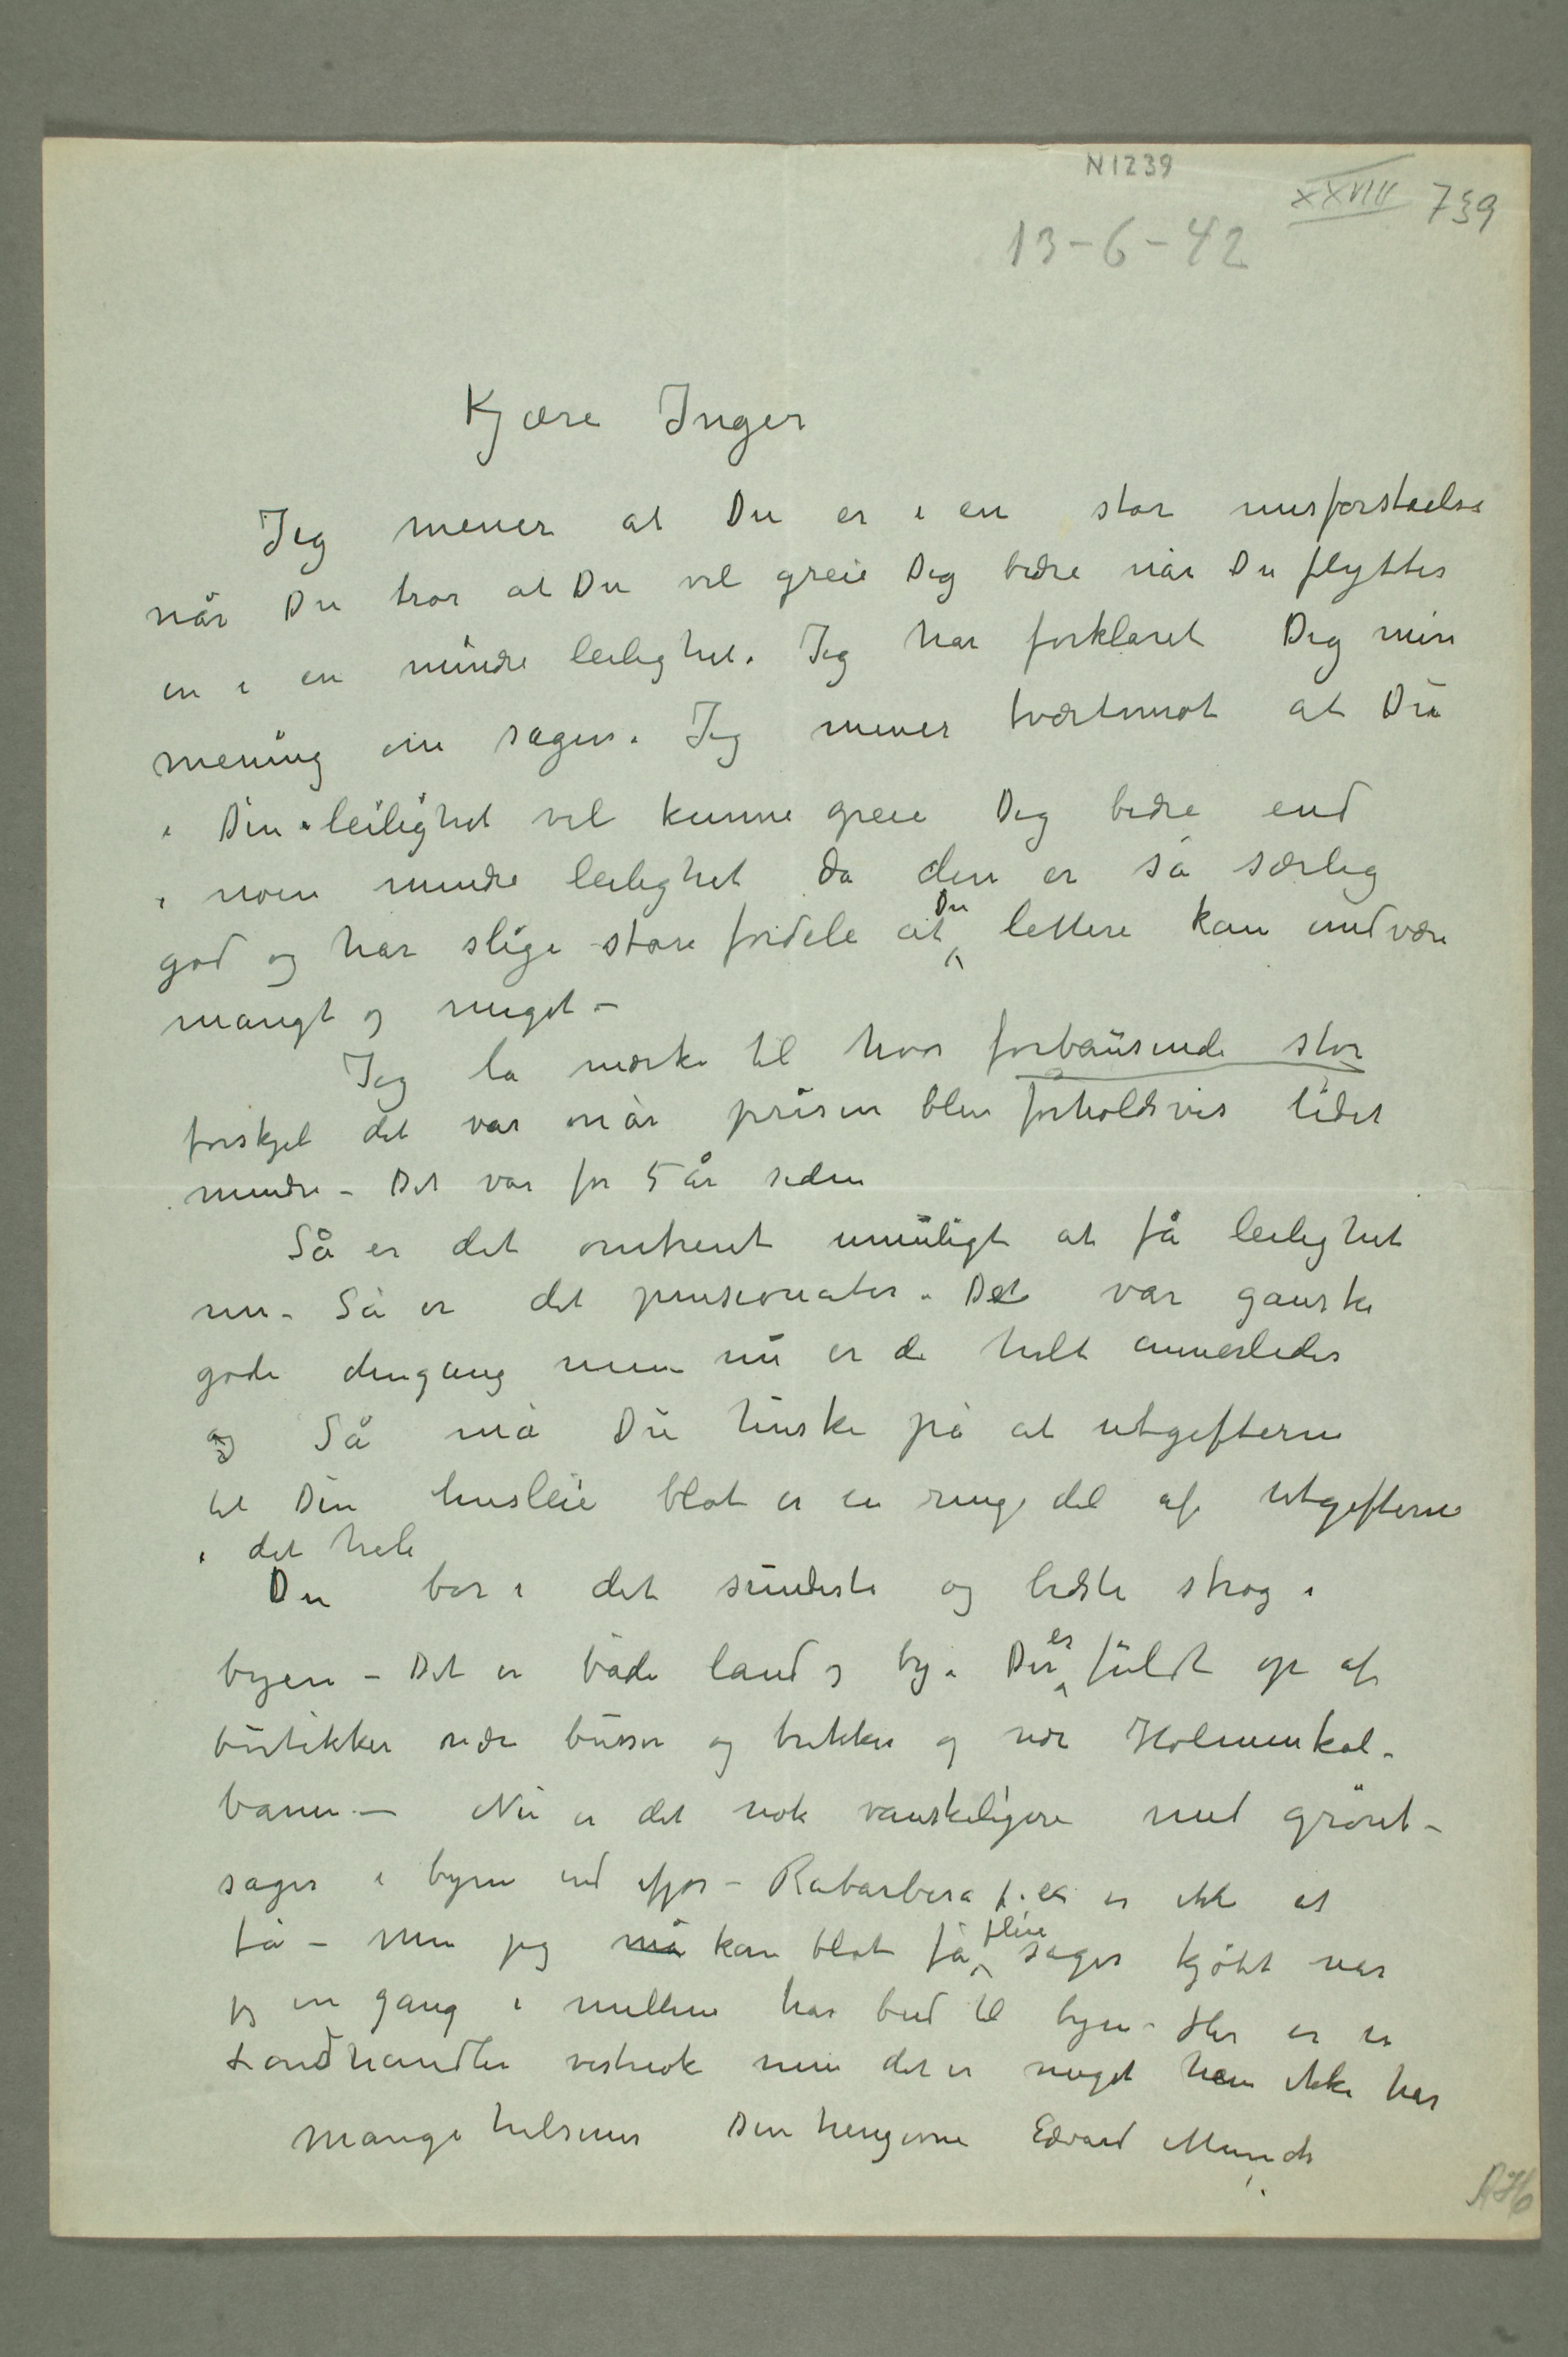 N1239
XXVIII 739
13-6-42
Kjære Inger
Jeg mener at Du er i en stor misforståelse
når Du tror at Du vil greie Dig bedre når Du flyttes
en i en mindre leilighet. Jeg har forklaret Dig min
mening om sagen. Jeg mener tværtimot at Du
i Din leilighet vil kunne greie Dig bedre end
i noen mindre leilighet da den er så særlig
god og har slige store fordele at Du lettere kan undvære
mangt og meget –
Jeg la mærke til hvor forbausende stor
forskjel det var når prisen blev forholdsvis lidet
mindre – Det var for 5 år siden
Så er det omtrent umuligt at få leilighet
nu – Så er det pensionater. Det var ganske
gode dengang men nu er de helt annerledes
og Så må Du huske på at utgifterne
til Din husleie blot er en ringe del af utgifterne
i det hele
Du bor i det sundeste og bedste strøg i
byen – Det er både land og by. Der er fuldt op af
butikker nære busser og trikker og nær Holmenkol-
banen. – Nu er det nok vanskeligere med grønt-
sager i byen end ifjor – Rabarbera f. ex er ikke at
få – Men jeg må kan blot få flere sager kjøbt når
jeg en gang i mellem har bud til byen – Her er en
Landhandler vistnok men det er meget han ikke har
Mange hilsener Din hengivne Edvard Munch